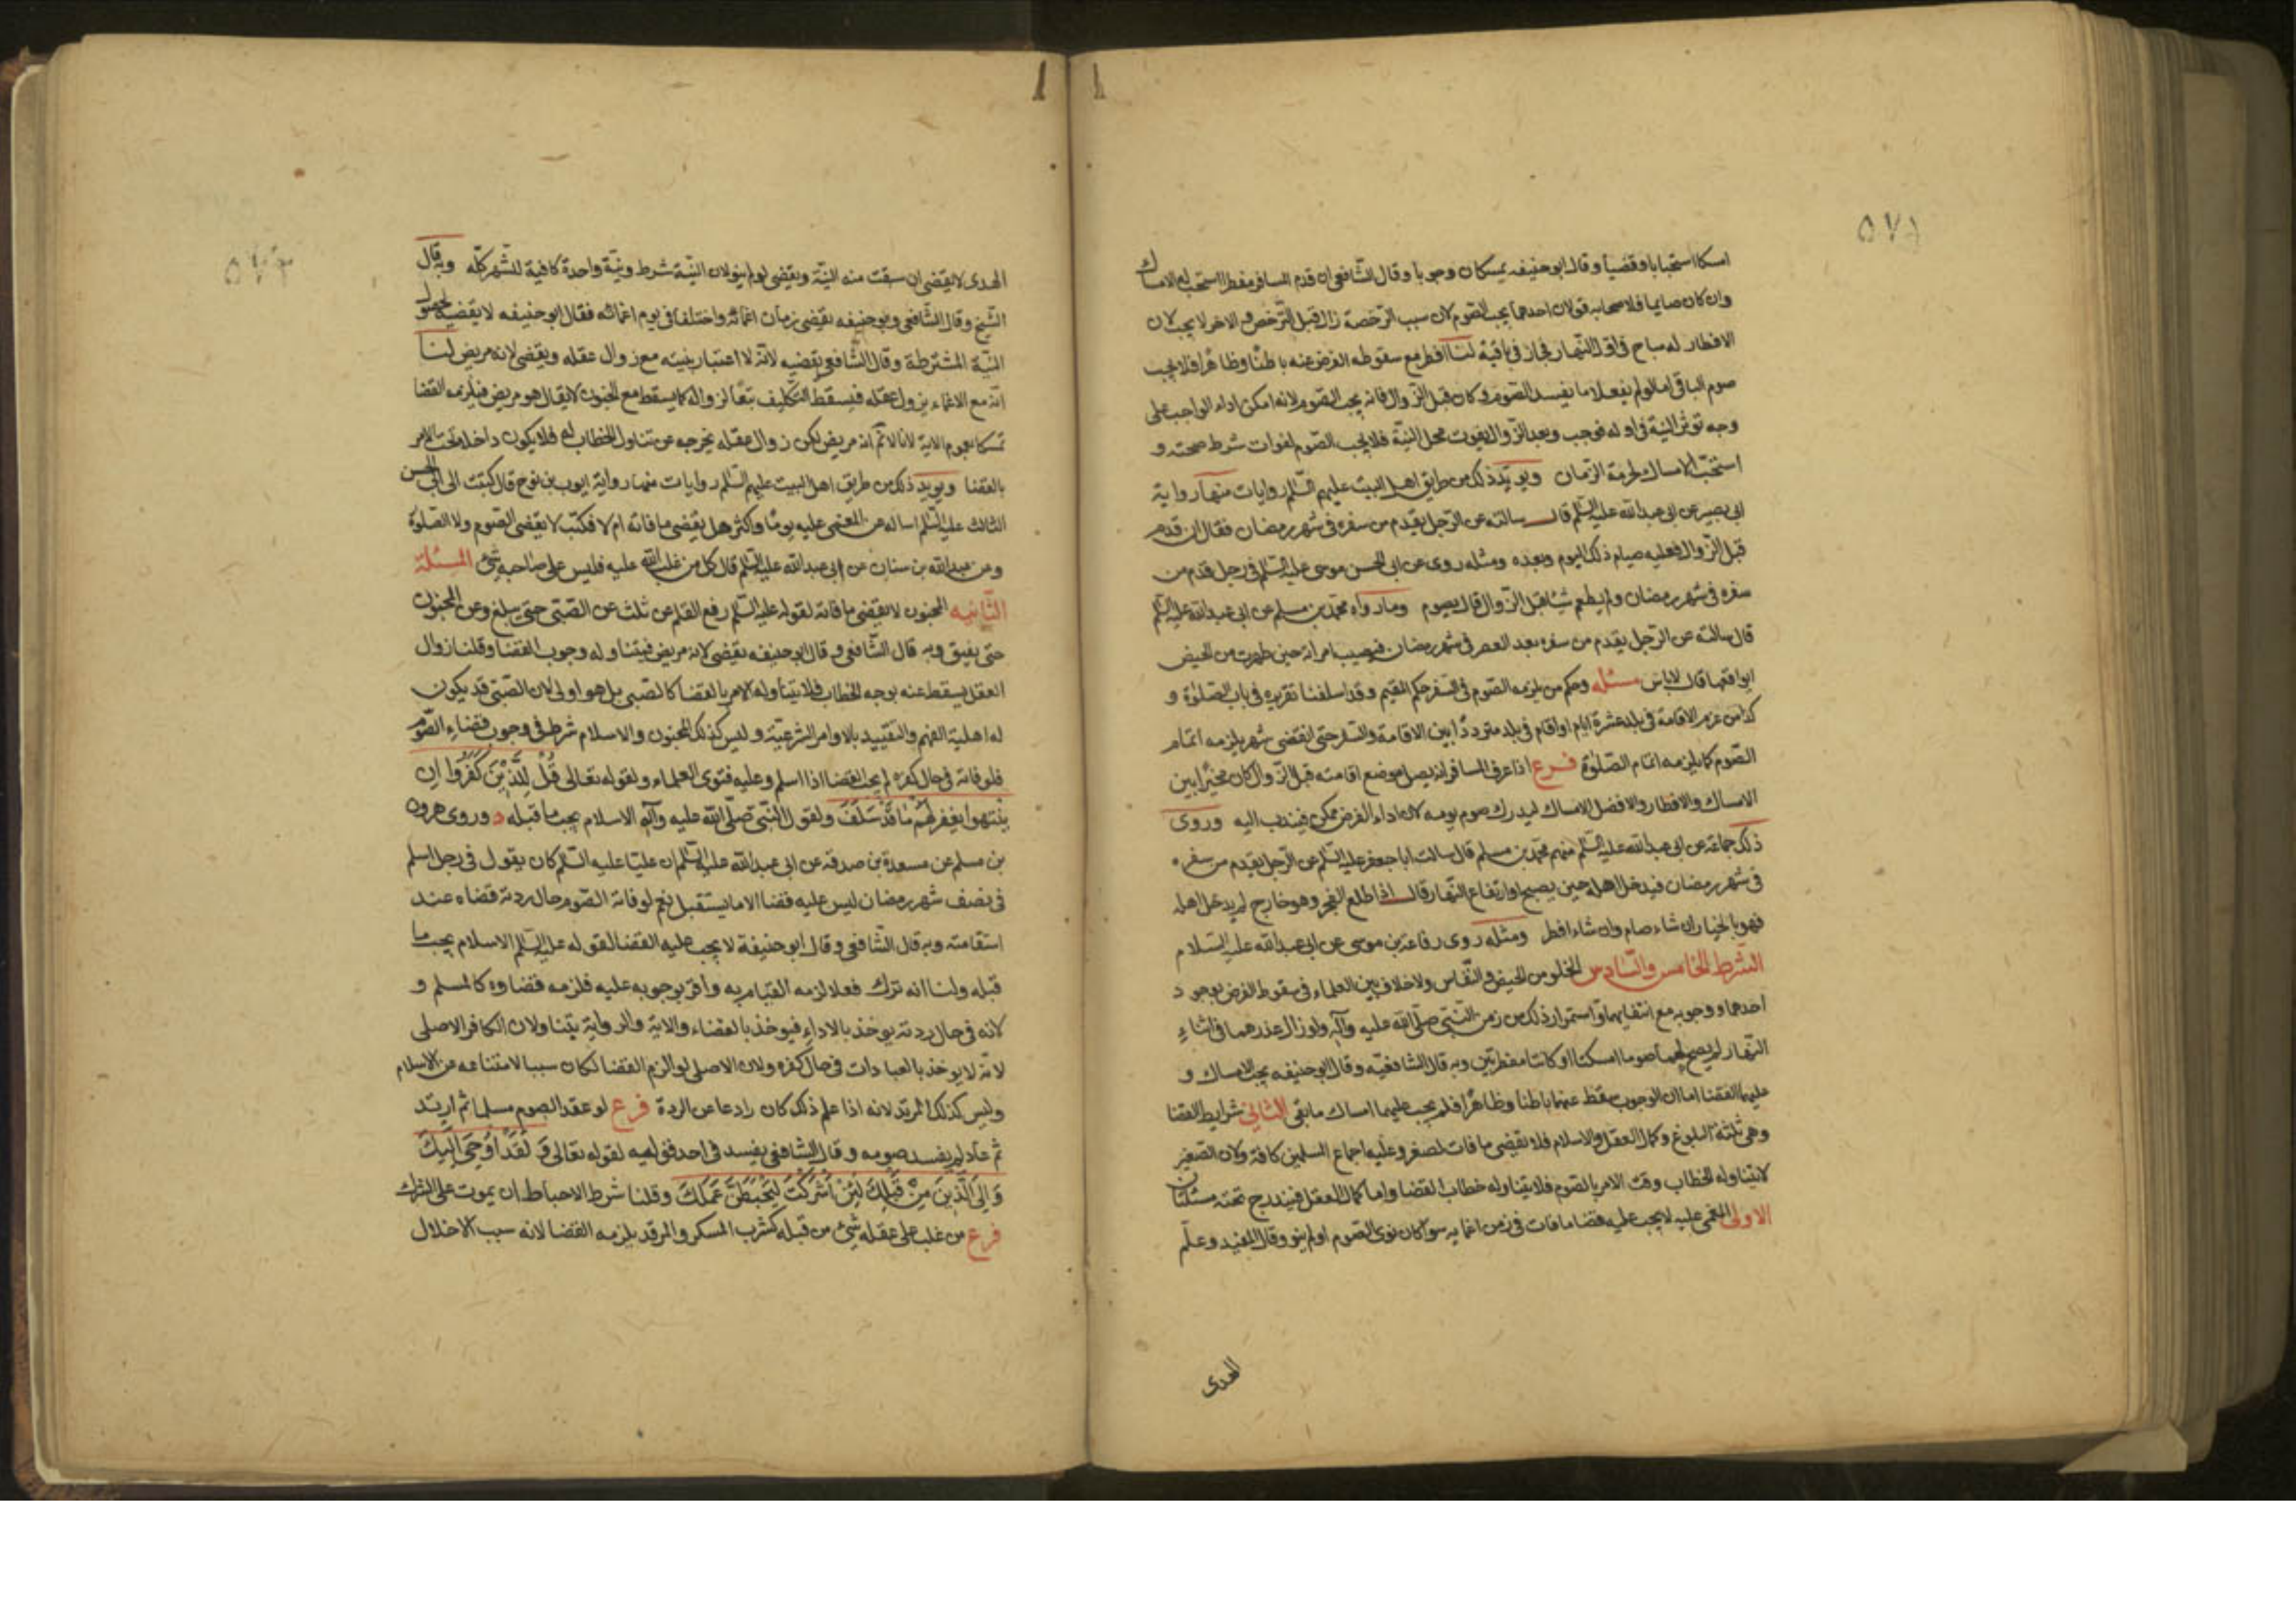 ٥٧١
امسكا استحبابا وقضيا وقال ابو حنيفه يمسكان وجوبا وقال الشافعى ان قدم المسافر مفطرا استحب له الامساك
وان كان صايما فلاصحابه قولان احدهما يجب الصوم لان سبب الرخصة زال قبل الترخص والاخر لا يجب لان
الافطار له مباح فى اول النهار فجاز فى باقيه لنا افطر مع سقوط الفرض عنه باطنا وظاهرا فلا يجب
صوم الباقى اما لو لم يفعلا ما يفسد الصوم وكان قبل الزوال فانه يجب الصوم لانه امكن اداء الواجب على
وجه تؤثر النية فى اوله فوجب وبعد الزوال يفوت محل النية فلا يجب الصوم لفوات شرط صحته و
استحب الامساك لحرمة الزمان ويؤيد ذلك من طريق اهل البيت عليهم السلم روايات منها رواية
ابى بصير عن ابى عبد الله عليه السلم قال سالته عن الرجل يقدم من سفره فى شهر رمضان فقال ان قدم
قبل الزوال فعليه صيام ذلك اليوم وبعده ومثله روى عن ابى الحسن موسى عليه السلم فى رجل قدم من
سفره فى شهر رمضان ولم يطعم شيئا قبل الزوال قال يصوم وما رواه محمد بن مسلم عن ابى عبد الله عليه السلم
قال سالته عن الرجل يقدم من سفره بعد العصر فى شهر رمضان فيصيب امراته حين طهرت من الحيض
ايواقعها قال لا باس مسئله وحكم من يلزمه الصوم فى السفر حكم المقيم وقد اسلفنا تقريره فى باب الصلوة و
كذا من عزم الاقامة فى بلد عشرة ايام او اقام فى بلد مترددا بين الاقامة والسفر حتى انقضى شهر يلزمه اتمام
الصوم كما يلزمه اتمام الصلوة فرع اذا عرف المسافر انه يصل موضع اقامته قبل الزوال كان مخيرا بين
الامساك والافطار والافضل الامساك ليدرك صوم يومه لان اداء الفرض ممكن فيندب اليه وروى
ذلك جماعة عن ابى عبد الله عليه السلم منهم محمد بن مسلم قال سالت ابا جعفر عليه السلم عن الرجل يقدم من سفره
فى شهر رمضان فيدخل اهله حين يصبح او ارتفاع النهار قال اذا طلع الفجر وهو خارج لم يدخل اهله
فهو بالخيار ان شاء صام وان شاء افطر ومثله روى رفاعة بن موسى عن ابى عبد الله عليه السلام
الشرط الخامس والسادس الخلو من الحيض والنفاس ولا خلاف بين العلماء فى سقوط الفرض بوجود
احدهما ووجوبه مع انتفايهما واستمرار ذلك من زمن النبى صلى الله عليه وآله ولو زال عذرهما فى اثناء
النهار لم يصح لهما صوما امسكتا او كانتا مفطرتين وبه قال الشافعيه وقال ابو حنيفه يجب الامساك و
عليهما القضا اما ان الوجوب سقط عنهما باطنا وظاهرا فلم يجب عليهما امساك ما بقى الثانى شرايط القضا
وهى ثلثة البلوغ وكمال العقل والاسلام فلا تقضى ما فات لصغر وعليه اجماع المسلمين كافة ولان الصغير
لا يتناوله الخطاب وقت الامر بالصوم فلا يتناوله خطاب القضا واما كمال العقل فيندرج تحته مسئلتان
الاولى المغمى عليه لا يجب عليه قضا ما فات فى زمن اغمايه سوا كان نوى الصوم او لم ينو وقال المفيد وعلم
الهدى
٥٧٢
الهدى لا يقضى ان سبقت منه النية ويقضى لو لم ينو لان النية شرط ونية واحدة كافية للشهر كله وبه قال
الشيخ وقال الشافعى وابو حنيفه يقضى زمان اغمائه واختلفا فى يوم اغمائه فقال ابو حنيفه لا يقضيه لحصول
النية المشترطة وقال الشافعى يقضيه لانه لا اعتبار بنيته مع زوال عقله ويقضى لانه مريض لنا
انه مع الاغماء يزول عقله فيسقط التكليف تبعا لزواله كما يسقط مع الجنون لا يقال هو مريض فيلزمه القضا
تمسكا بعموم الاية لانا لا نم انه مريض لكن زوال عقله يخرجه عن تناول الخطاب له فلا يكون داخلا تحت الامر
بالقضا ويؤيد ذلك من طريق اهل البيت عليهم السلم روايات منها رواية ايوب بن نوح قال كتبت الى ابى الحسن
الثالث عليه السلم اساله عن المغمى عليه يوما واكثر هل يقضى ما فاته ام لا فكتب لا يقضى الصوم ولا الصلوة
وعن عبد الله بن سنان عن ابى عبد الله عليه السلم قال كل من غلب الله عليه فليس على صاحبه شئ المسئلة
الثانيه المجنون لا يقضى ما فاته لقوله عليه السلم رفع القلم عن ثلث عن الصبى حتى يبلغ وعن المجنون
حتى يفيق وبه قال الشافعى وقال ابو حنيفه يقضى لانه مريض فيتناوله وجوب القضا وقلنا زوال
العقل يسقط عنه توجه الخطاب فلا يتناوله الامر بالقضا كالصبى بل هو اولى لان الصبى قد يكون
له اهلية الفهم والتقييد بالاوامر الشرعية وليس كذلك المجنون والاسلام شرط فى وجوب قضاء الصوم
فلو فاته فى حال كفره لم يجب القضا اذا اسلم وعليه فتوى العلماء ولقوله تعالى قُلْ لِلَّذِينَ كَفَرُوا اِن
يَنْتَهوا يُغْفَر لَهُمْ مَا قَدْ سَلَفَ ولقول النبى صلى الله عليه وآله الاسلام يجب ما قبله وروى هرون
بن مسلم عن مسعدة بن صدقه عن ابى عبد الله عليه السلم ان عليا عليه السلم كان يقول فى رجل اسلم
فى نصف شهر رمضان ليس عليه قضا الا ما يستقبل نعم لو فاته الصوم حال ردته قضاه عند
استقامته وبه قال الشافعى وقال ابو حنيفة لا يجب عليه القضا لقوله عليه السلم الاسلام يجب ما
قبله ولنا انه ترك فعلا لزمه القيام به واقر بوجوبه عليه فلزمه قضاوه كالمسلم و
لانه فى حال ردته يوخذ بالاداء فيوخذ بالقضاء والاية والرواية يتناولان الكافر الاصلى
لانه لا يوخذ بالعبادات فى حال كفره ولان الاصلى لو الزم القضا لكان سببا لامتناعه من الاسلام
وليس كذلك المرتد لانه اذا علم ذلك كان رادعا عن الردة فرع لو عقد الصوم مسلما ثم ارتد
ثم عاد لم يفسد صومه وقال الشافعى يفسد فى احد قوليه لقوله تعالى وَ لَقَدْ اُوحِىَ اِلَيكَ
وَ اِلَى الَّذِينَ مِنْ قَبْلِكَ لَئِنْ اَشْرَكْتَ لَيَحْبَطَنَّ عَمَلُكَ وقلنا شرط الاحباط ان يموت على الشرك
فرع من غلب على عقله شئ من قبله كشرب المسكر والمرقد يلزمه القضا لانه سبب الاخلال